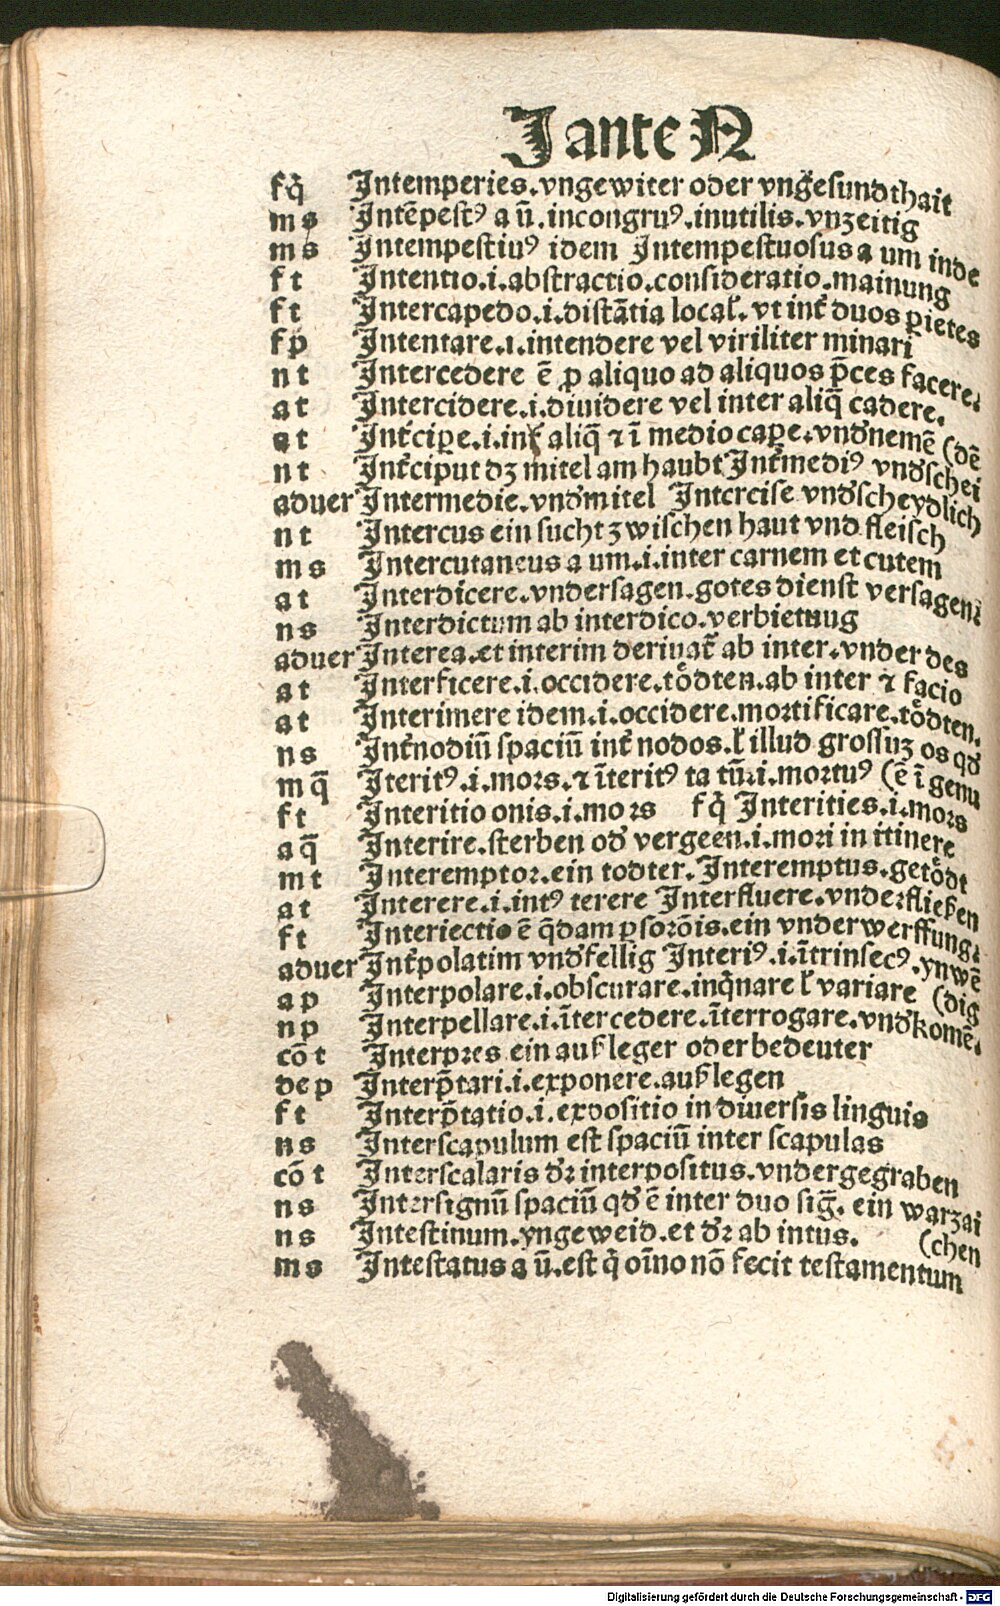 J ante N
fq̄ Jntemperies.vngewiter oder vngesundthait
m s Jntēpestꝰ a ū.incongruꝰ.inutilis.vnzeitig
m s Jntempestiuꝰ idem Jntempestuosus a um inde
f t Jntentio.i.abstractio.consideratio.mainung
f t Jntercapedo.i.distātia local̄.vt int̄ duos ꝑietes
f p Jntentare.i.intendere vel viriliter minari
n t Jntercedere ē ꝓ aliquo ad aliquos p̄ces facere.
a t Jntercidere.i.diuidere vel inter aliq̄ cadere.
a t Jnt̄ciꝑe.i.int̄ aliq̄ ⁊ ī medio caꝑe.vnd̄nemē (dē
n t Jnt̄ciput dꝫ mitel am haubt Jnt̄mediꝰ vnd̄schei
aduer Jntermedie.vnd̄mitel Jntercise vnd̄scheydlich
n t Jntercus ein sucht zwischen haut vnd fleisch
m s Jntercutaneus a um.i.inter carnem et cutem
a t Jnterdicere.vndersagen.gotes dienst versagen.
n s Jnterdictum ab interdico.verbietnug
aduer Jnterea.et interim deriuat̄ ab inter.vnder des
a t Jnterficere.i.occidere.tödten.ab inter ⁊ facio
a t Jnterimere idem.i.occidere.mortificare.tödten.
n s Jnt̄nodiū spaciū int̄ nodos.ł illud grossuz os qd̄
m q̄ Jteritꝰ.i.mors.⁊ īteritꝰ ta tū.i.mortuꝰ (ē ī genu
f t Jnteritio onis.i.mors fq̄ Jnterities.i.mors
a q̄ Jnterire.sterben od̄ vergeen.i.mori in itinere
m t Jnteremptor.ein todter.Jnteremptus.getödt
a t Jnterere.i.intꝰ terere Jnterfluere.vnderfließen
f t Jnteriectio ē q̄dam ꝑs orōis.ein vnderwerffung.
aduer Jnt̄polatim vnd̄fellig Jnteriꝰ.i.ītrinsecꝰ.ynwē
a p Jnterpolare.i.obscurare.inq̄nare ł variare (dig
n p Jnterpellare.i.ītercedere.īterrogare.vnd̄komē.
cō t Jnterpres ein außleger oder bedeuter
de p Jnterp̄tari.i.exponere.außlegen
f t Jnterp̄tatio.i.expositio in diuersis linguis
n s Jnterscapulum est spaciū inter scapulas
cō t Jnterscalaris dr̄ interpositus.vndergegraben
n s Jntersignū spaciū qd̄ ē inter duo siḡ. ein warzai
n s Jntestinum.yngeweid.et dr̄ ab intus. (chen
m s Jntestatus a ū.est q̄ oīno nō fecit testamentum
Digitalisierung gefördert durch die Deutsche Forschungsgemeinschaft - DFG